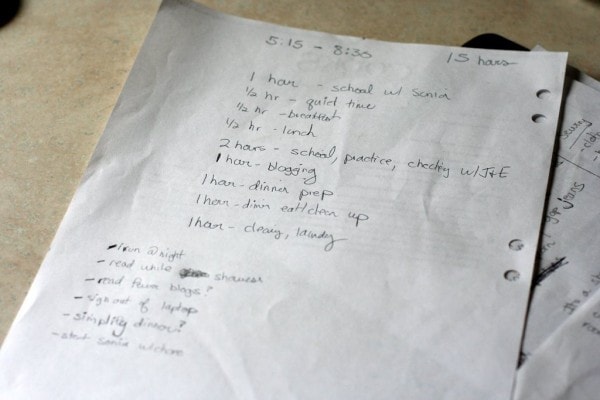 5:15 - 8:30 15 hours
1 hour - school w/ Senior
1/2 hr - quiet time
1/2 hr - breakfast
1/2 hr - lunch
2 hours - school, practice, checking w/ J+E
1 hour - blogging
1 hour - dinner prep
1 hour - dinner eat/clean up
1 hour - cleaning, laundry
- iron @ night
- read while showers
- read fewer blogs?
- sign out of laptop
- simplify dinner?
- start senior w/ chore
jeans